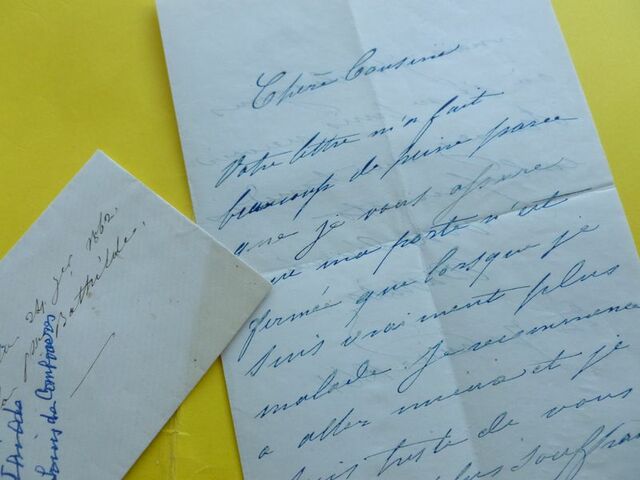 Chère Cousine
Votre lettre m'a fait
beaucoup de peine parce
que je vous assure
que ma porte n'est
fermée que lorsque je
suis vraiment plus
malade. Je recommence
a aller mieux et je
suis triste de vous
plus souffra
24 1862.
Bathilde.
Louis de